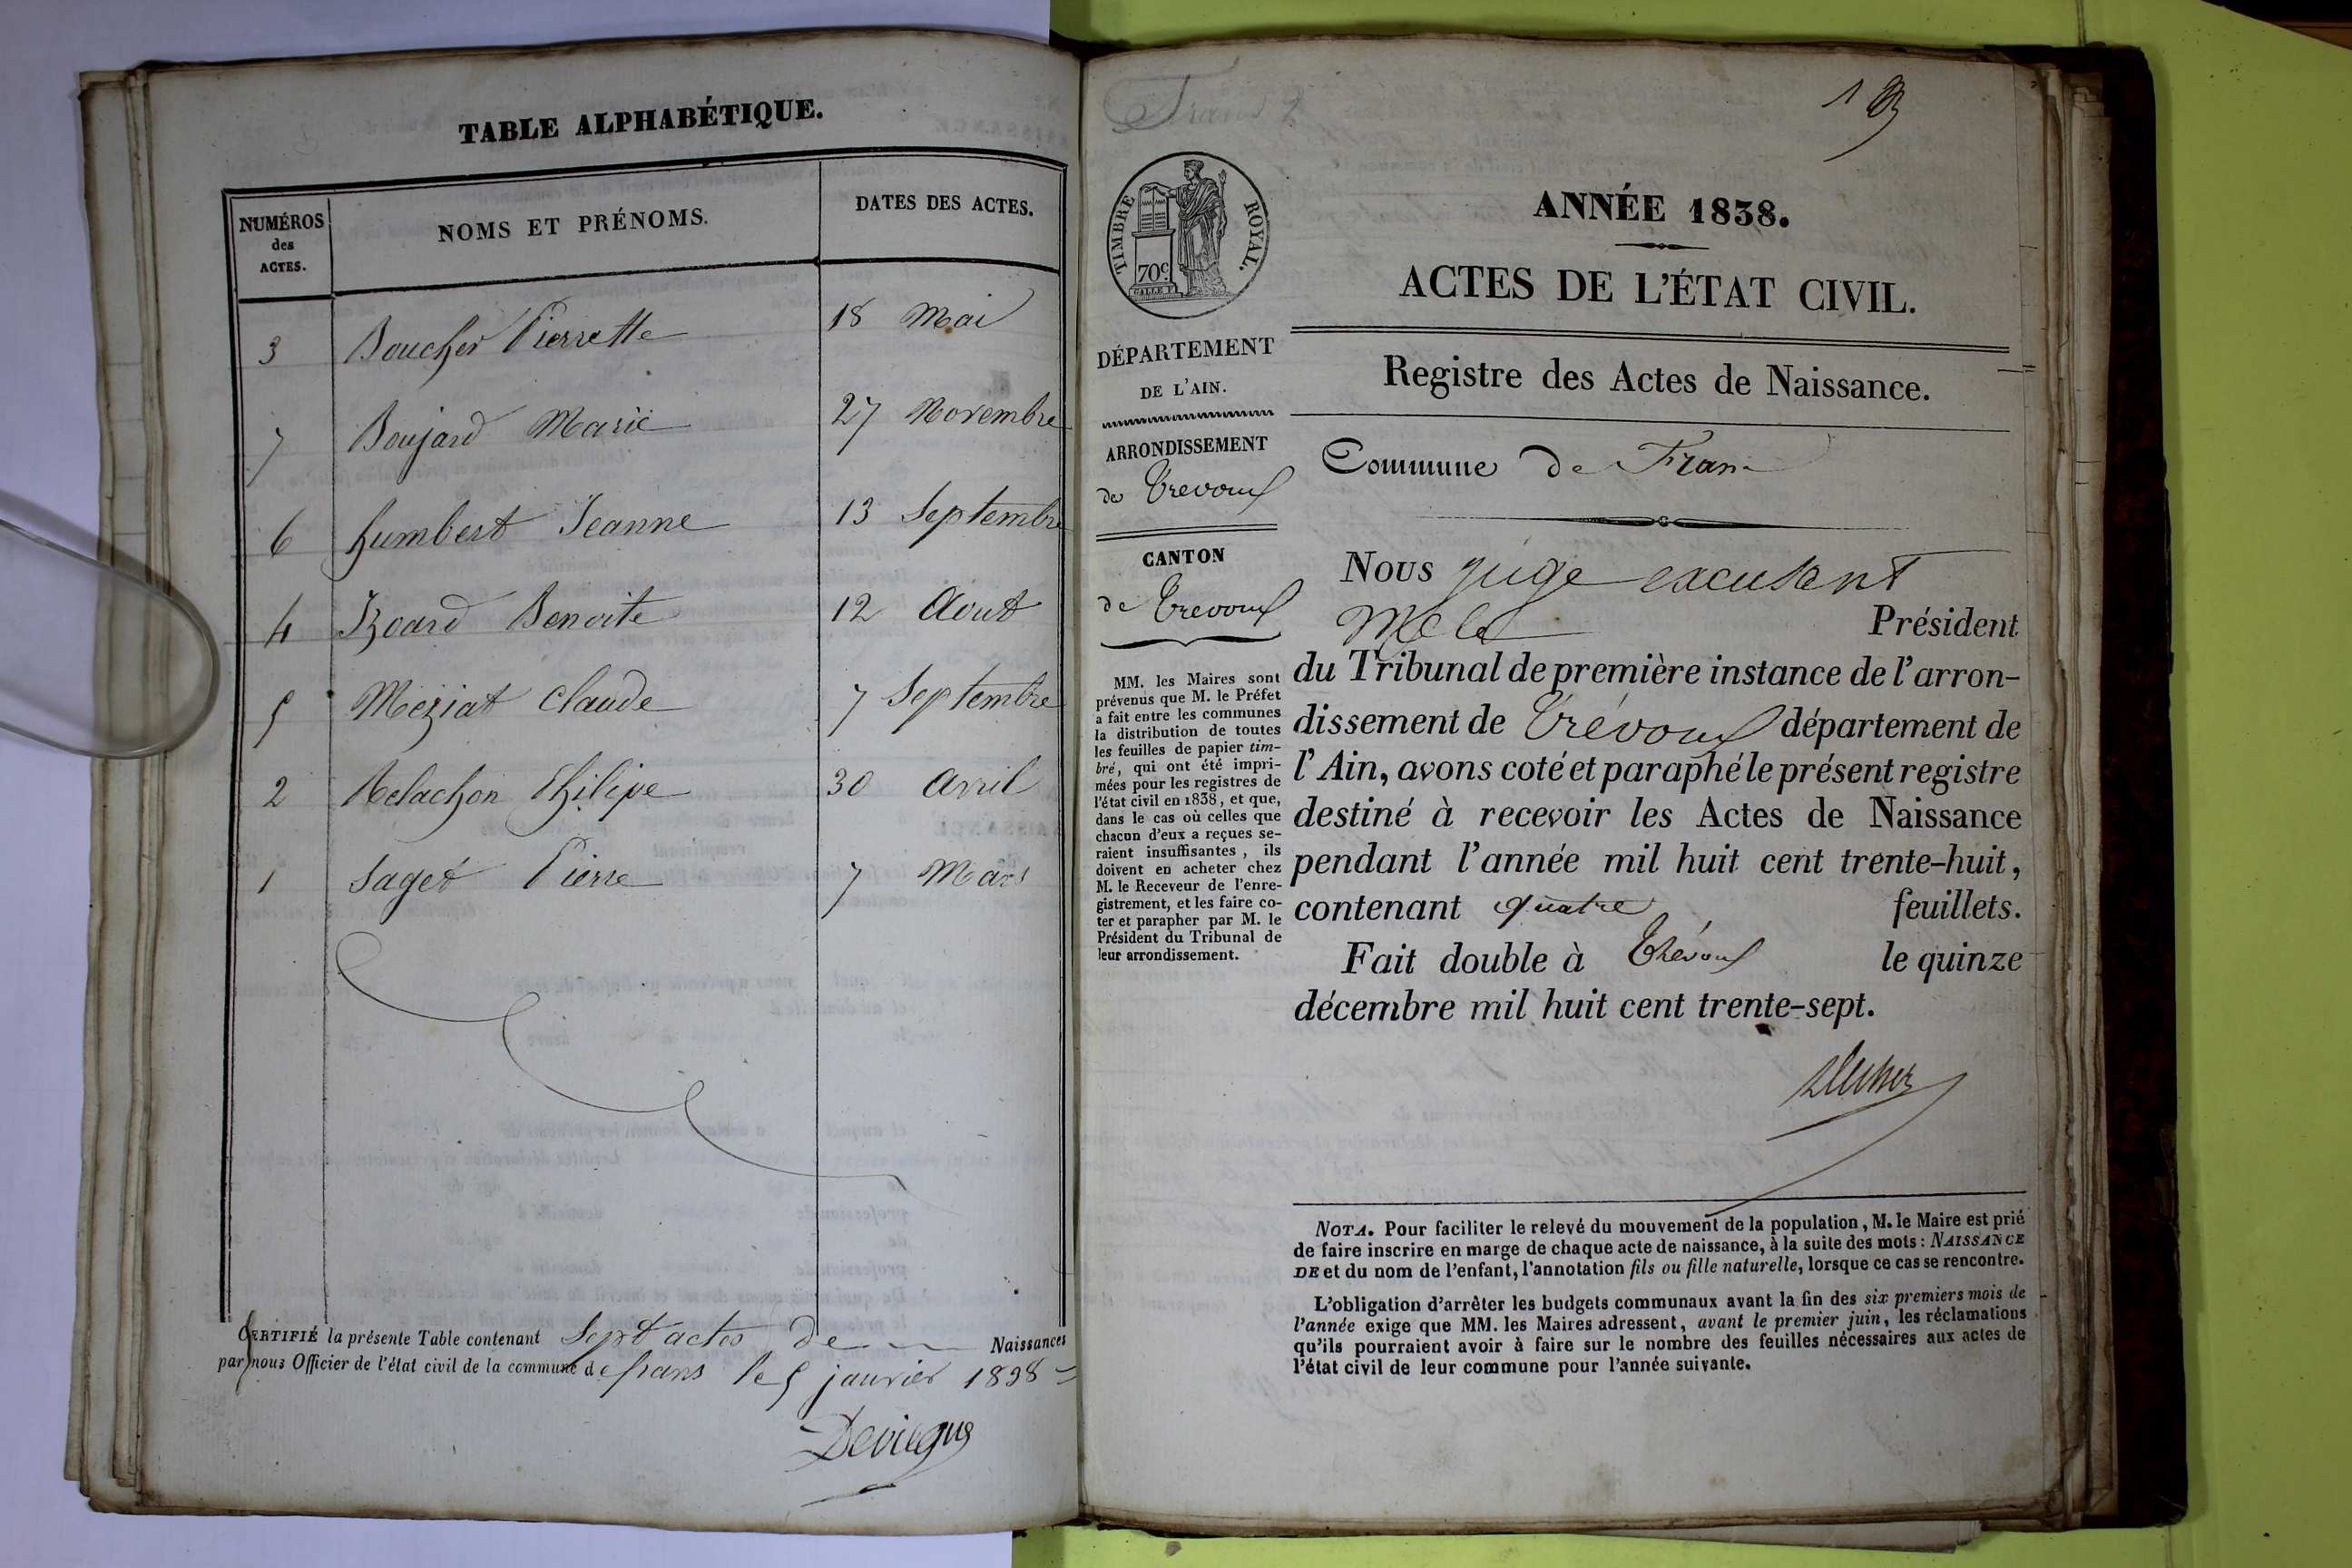 TABLE ALPHABÉTIQUE.
NUMÉROS
des
ACTES.
NOMS ET PRÉNOMS.
DATES DES ACTES.
3 Boucher Pierrette 18 Mai
7 Boujard Marie 27 Novembre
6 humbert Jeanne 13 Septembre
4 Izoard Benoite 12 Aout
5 Méziat Claude 7 Septembre
2 Relachon Philipe 30 Avril
1 Saget Pierre 7 Mars
CERTIFIÉ la présente Table contenant Sept actes de Naissances
par nous Officier de l'état civil de la commune de frans le 5 janvier 1838
Frans 2
1
TIMBRE ROYAL.
70c
ANNÉE 1838.
ACTES DE L'ÉTAT CIVIL.
Registre des Actes de Naissance.
Commune de Frans
DÉPARTEMENT
DE L'AIN.
ARRONDISSEMENT
de Trevoux
CANTON
de Trevoux
MM. les Maires sont
prévenus que M. le Préfet
a fait entre les communes
la distribution de toutes
les feuilles de papier tim-
bré, qui ont été impri-
mées pour les registres de
l'état civil en 1838, et que,
dans le cas où celles que
chacun d'eux a reçues se-
raient insuffisantes, ils
doivent en acheter chez
M. le Receveur de l'enre-
gistrement, et les faire co-
ter et parapher par M. le
Président du Tribunal de
leur arrondissement.
Nous juge excusant
Mr le Président
du Tribunal de première instance de l'arron-
dissement de Trévoux département de
l'Ain, avons coté et paraphé le présent registre
destiné à recevoir les Actes de Naissance
pendant l'année mil huit cent trente-huit,
contenant quatre feuillets.
Fait double à Trévoux le quinze
décembre mil huit cent trente-sept.
NOTA. Pour faciliter le relevé du mouvement de la population, M. le Maire est prié
de faire inscrire en marge de chaque acte de naissance, à la suite des mots : NAISSANCE
DE et du nom de l'enfant, l'annotation fils ou fille naturelle, lorsque ce cas se rencontre.
L'obligation d'arrêter les budgets communaux avant la fin des six premiers mois de
l'année exige que MM. les Maires adressent, avant le premier juin, les réclamations
qu'ils pourraient avoir à faire sur le nombre des feuilles nécessaires aux actes de
l'état civil de leur commune pour l'année suivante.